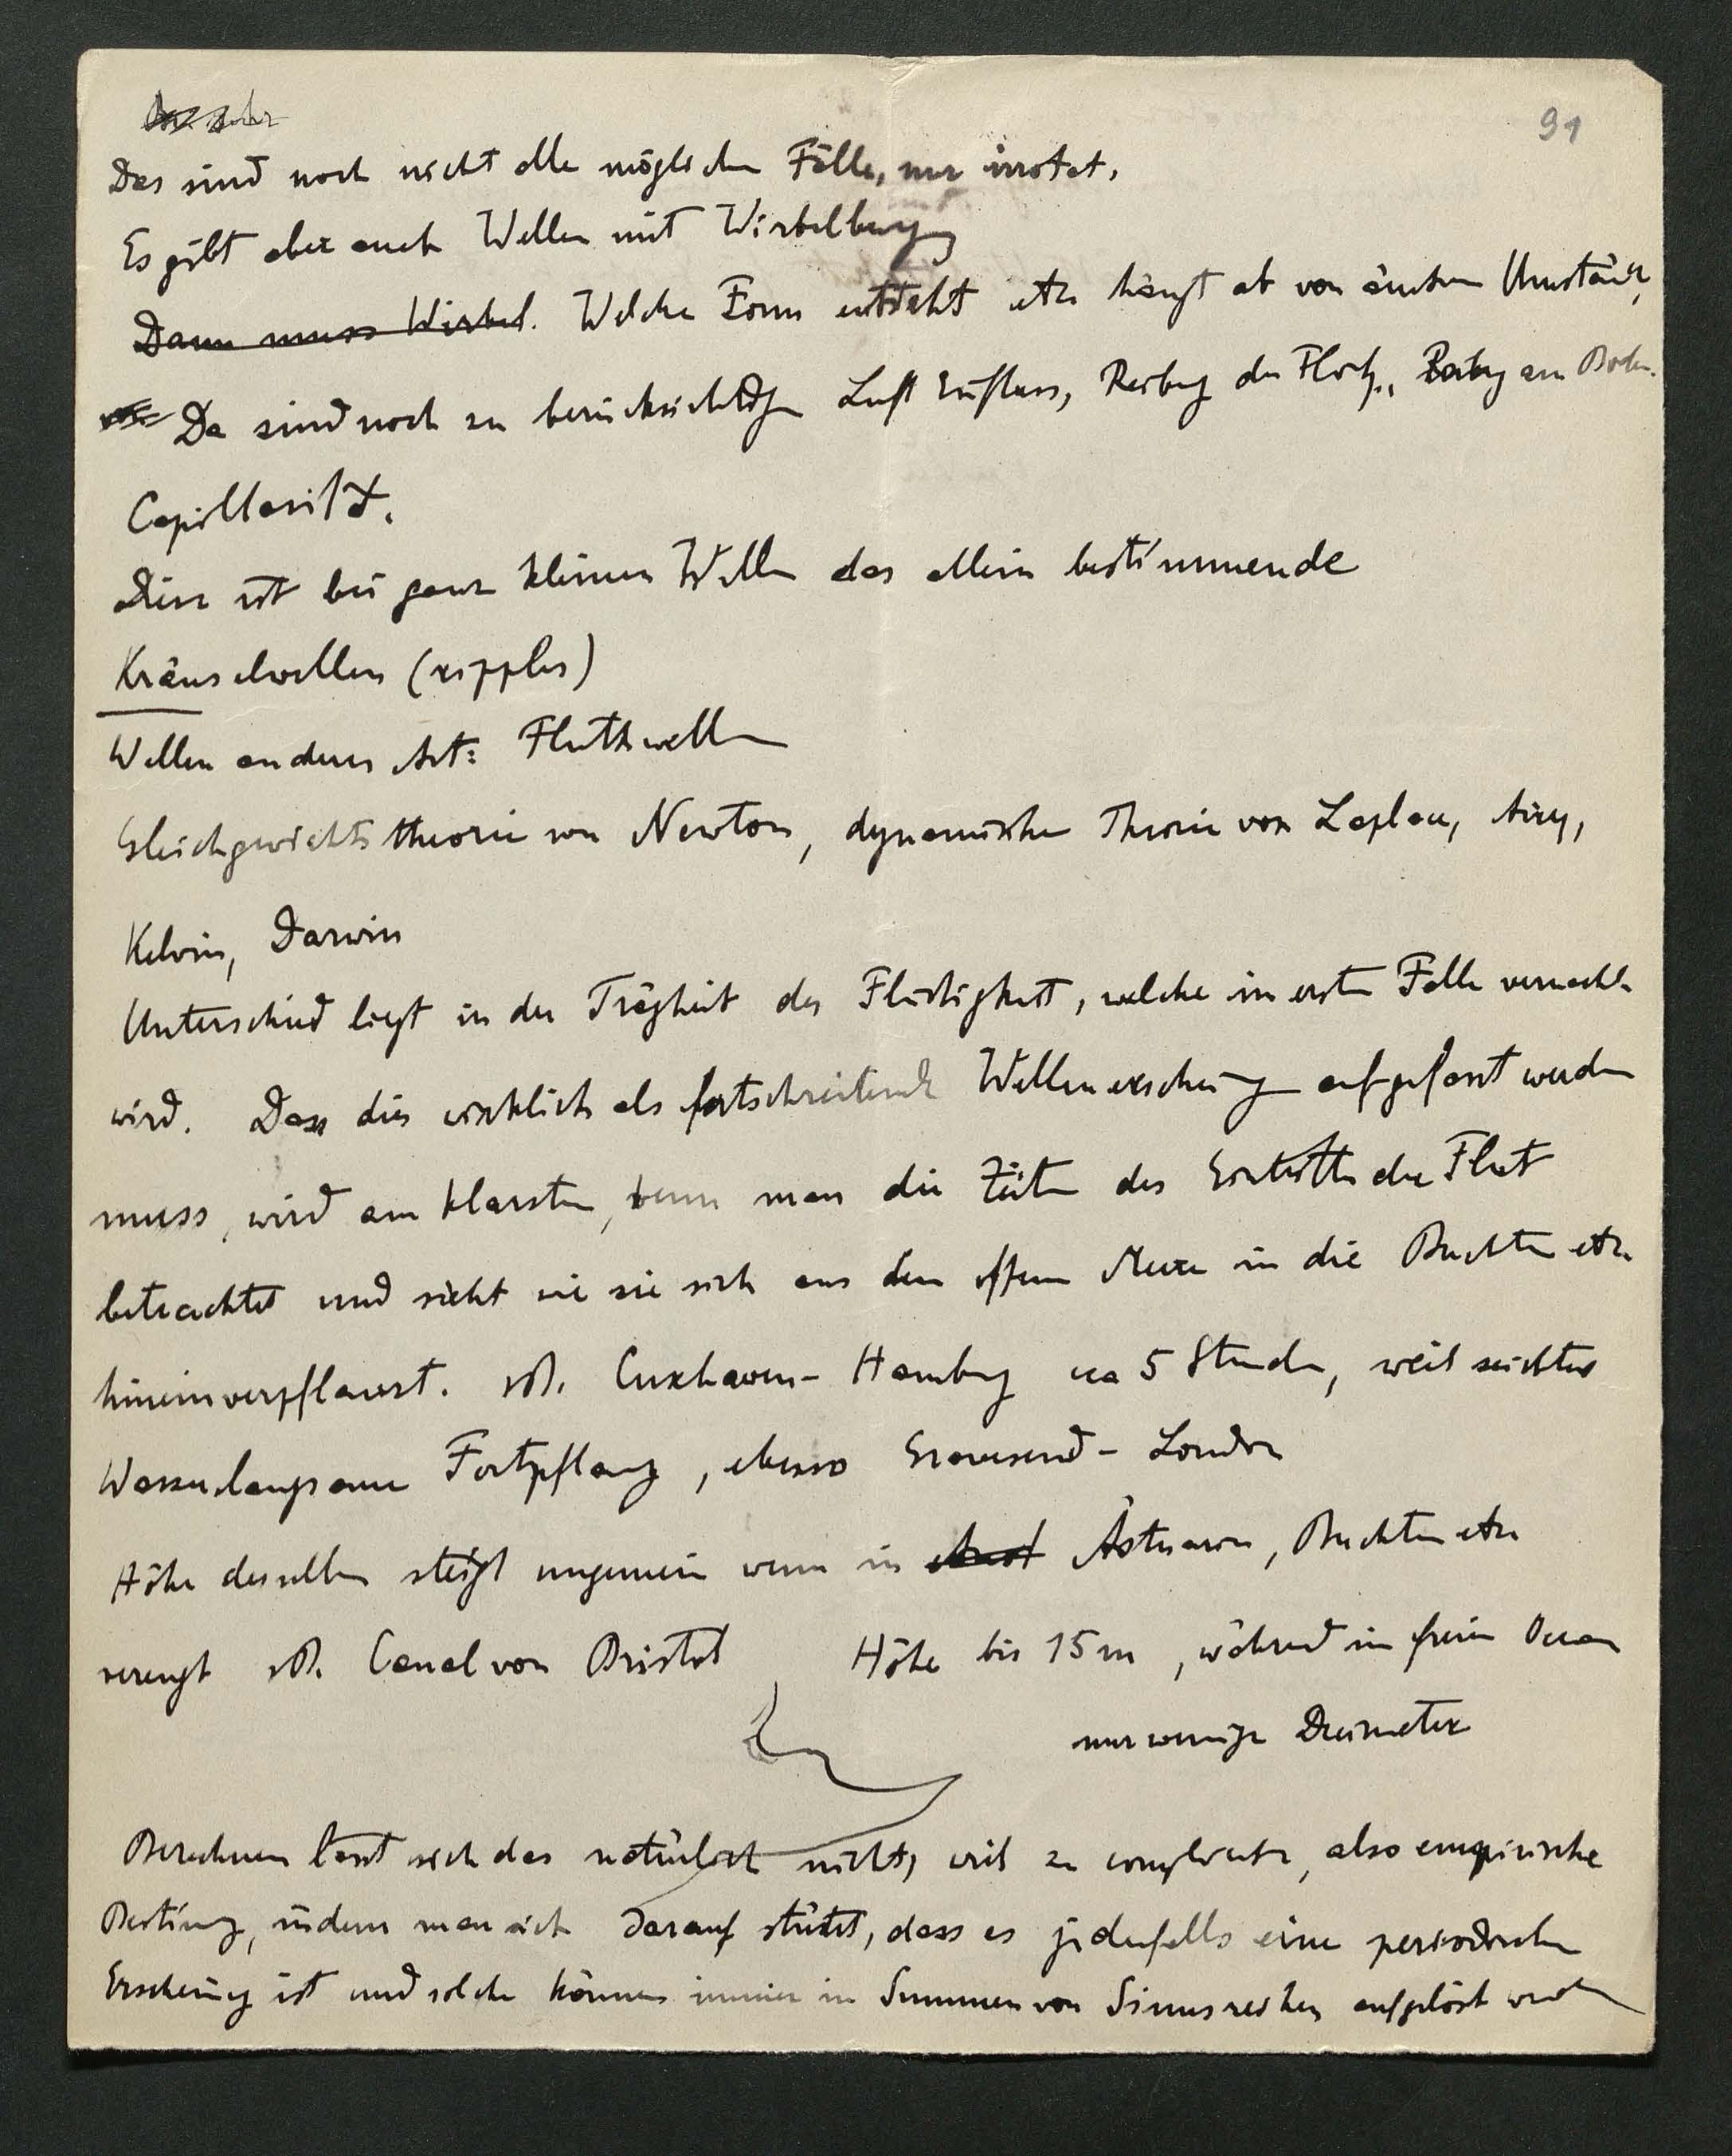 91
Das sind noch nicht alle möglichen Fälle, nur irrotat.
Es gibt aber auch Wellen mit Wirbelbwgg
Dann muss Wirbel. Welche Form entsteht etc hängt ab von äussern Umständ,
Da sind noch zu berücksichtigen Luft Einfluss, Reibung der Flssgk., Reibg am Boden.
Capillarität.
Diese ist bei ganz kleinen Wellen das allein bestimmende
Kräuselwellen (ripples)
Wellen anderer Art: Fluthwellen
Gleichgewichtstheorie von Newton, dynamische Theorie von Laplace, Airy,
Kelvin, Darwin
Unterschied liegt in der Trägheit der Flüssigkeit, welche im ersten Falle vernachl.
wird. Dass dies wirklich als fortschreitende Wellenerscheing aufgefasst werden
muss, wird am klarsten, wenn man die Zeiten des Eintritts der Flut
betrachtet und sieht wie sie sich aus dem offenen Meere in die Buchten etc
hineinverpflanzt. zB. Cuxhaven - Hamburg ca 5 Stunden, weil seichtes
Wasser langsame Fortpflanzg, ebenso Gravesend - London
Höhe derselben steigt ungemein wenn in Ästuarien, Buchten etc
verengt zB. Canal von Bristol Höhe bis 15 m, während im freien Ocean
nur wenige Decimeter
Berechnen lässt sich das natürlich nicht, weil zu complicirt, also empirische
Bestimmg, indem man sich darauf stützt, dass es jedenfalls eine periodische
Erscheing ist und solche können immer in Summen von Sinusreihen aufgelöst werden